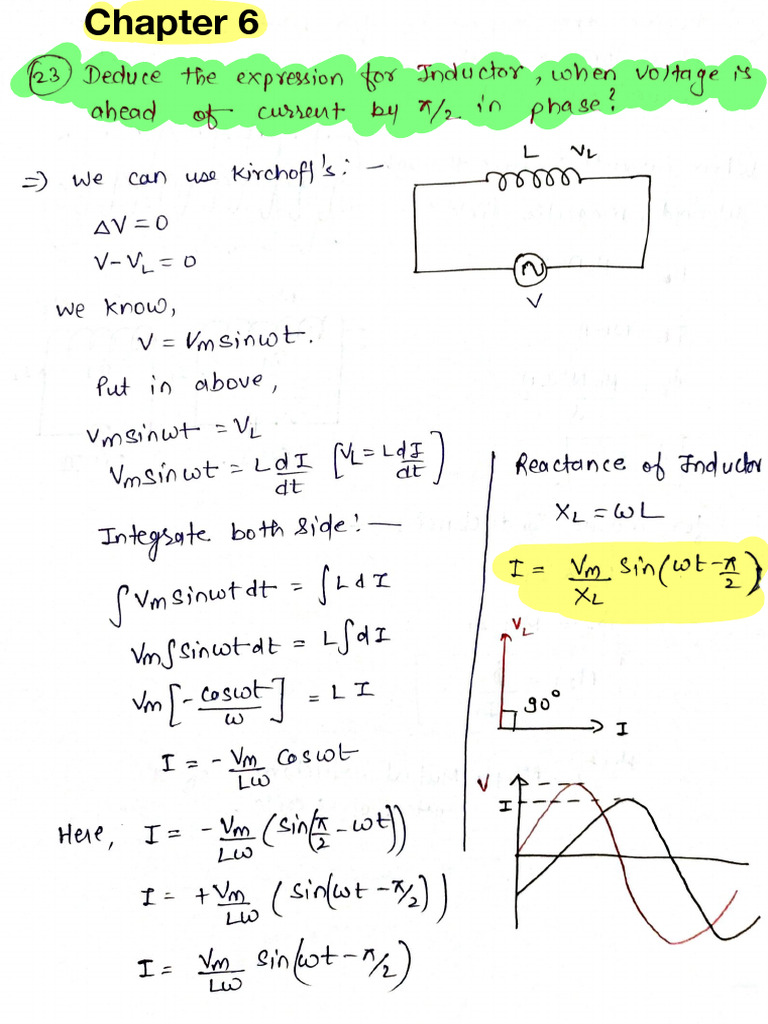 Chapter 6
(23) Deduce the expression for Inductor, when voltage is
ahead of current by π/2 in phase?
⇒ We can use Kirchoff's: —
ΔV = 0
V - V_L = 0
We know,
V = Vm sin ωt.
Put in above,
Vm sin ωt = V_L
Vm sin ωt = L dI/dt [V_L = L dI/dt]
Integrate both side: —
∫ Vm sin ωt dt = ∫ L dI
Vm ∫ sin ωt dt = L ∫ dI
Vm [- cos ωt / ω] = L I
I = - Vm/Lω cos ωt
Here, I = - Vm/Lω (sin(π/2 - ωt))
I = + Vm/Lω (sin(ωt - π/2))
I = Vm/Lω sin(ωt - π/2)
L V_L
V
Reactance of Inductor
X_L = ωL
I = Vm/X_L sin(ωt - π/2)
V_L
90°
I
V
I